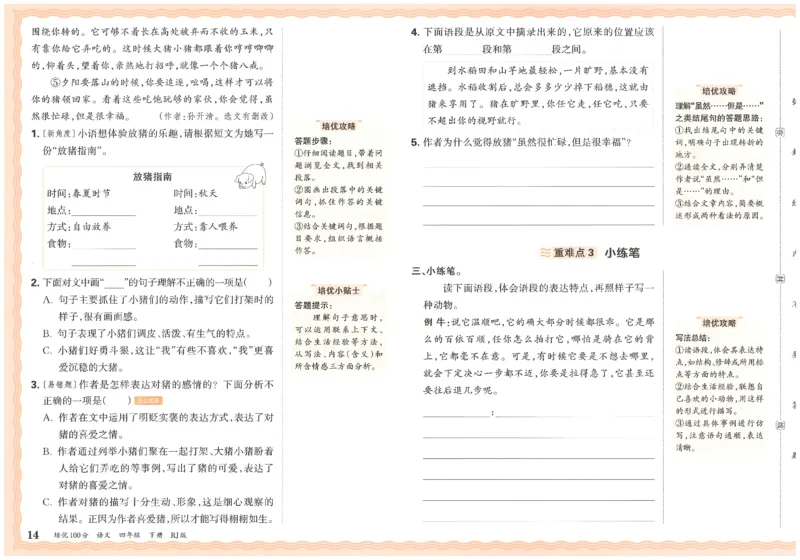 围绕你转的。它可够不着长在高处被弃而不收的玉米,只
有靠你给它弄吃的。这时候大猪小猪都跟着你哼哼唧唧
的,仰着头,望着你,亲热地打招呼,就像一个个猪八戒。
⑤夕阳要落山的时候,你要追逐,吆喝,这样才可以将
你的猪领回家。看着这些吃饱玩够的家伙,你会觉得,虽
然很忙碌,但是很幸福。 (作者:孙开清。选文有删改)
1.[新角度]小语想体验放猪的乐趣,请根据短文为她写一
份“放猪指南”。
放猪指南
时间:春夏时节 时间:秋天
地点: 地点:
方式:自由放养 方式:靠人喂养
食物: 食物:
2.下面对文中画“____”的句子理解不正确的一项是( )
A. 句子主要抓住了小猪们的动作,描写它们打架时的
样子,很有画面感。
B. 句子表现了小猪们调皮、活泼、有生气的特点。
C. 小猪们好勇斗狠,这让“我”有些不喜欢,“我”更喜
爱沉稳的大猪。
3.[易错题]作者是怎样表达对猪的感情的? 下面分析不
正确的一项是( )
A. 作者在文中运用了明贬实褒的表达方式,表达了对
猪的喜爱之情。
B. 作者通过列举小猪们聚在一起打架、大猪小猪盼着
人给它们弄吃的等事例,写出了猪的可爱,表达了
对猪的喜爱之情。
C. 作者对猪的描写十分生动、形象,这是细心观察的
结果。正因为作者喜爱猪,所以才能写得栩栩如生。
14 培优100分 语文 四年级 下册 RJ版
培优攻略
答题步骤:
①仔细阅读题目,带着问
题浏览全文,找到相关
段落。
②圈画出段落中的关键
词句,抓住作答的关键
信息。
③结合关键词句,根据题
目要求,组织语言概括
作答。
培优小贴士
答题提示:
理解句子意思时,
可以运用联系上下文、
结合生活经验等方法,
从写法、内容(含义)和
所含情感三方面分析。
4.下面语段是从原文中摘录出来的,它原来的位置应该
在第____段和第____段之间。
到水稻田和山芋地最轻松,一片旷野,基本没有
遮挡。水稻收割后,总会多多少少掉下稻穗,这就由
猪来享用了。猪在旷野里,你任它走,任它吃,只要
不超出你的视野就行。
5.作者为什么觉得放猪“虽然很忙碌,但是很幸福”?
重难点3 小练笔
三、小练笔。
读下面语段,体会语段的表达特点,再照样子写一
种动物。
例 牛:说它温顺吧,它的确大部分时候都很乖。它是那
么的百依百顺,任你怎么抽打它,哪怕是骑在它的背
上,它都毫不在意。可是,有时候它要是不想去哪里,
就会下定决心一步都不迈,你要是拉得急了,它甚至还
要往后退几步呢。
:
培优攻略
理解“虽然……但是……”
之类结尾句的答题思路:
①找出结尾句中的关键
词,明确句子出现转折的
地方。
②通读全文,分别弄清楚
作者说“虽然……”和“但
是……”的理由。
③结合文章内容,简要概
述形成两种看法的原因。
培优攻略
写法总结:
①读语段,体会其表达特
点,如结构、修辞或所用标
点等方面的特点。
②结合生活经验,联想自
己喜欢的小动物,用这样
的形式进行描写。
③通过具体事例进行仿
写,注意语句通顺,表达
清晰。